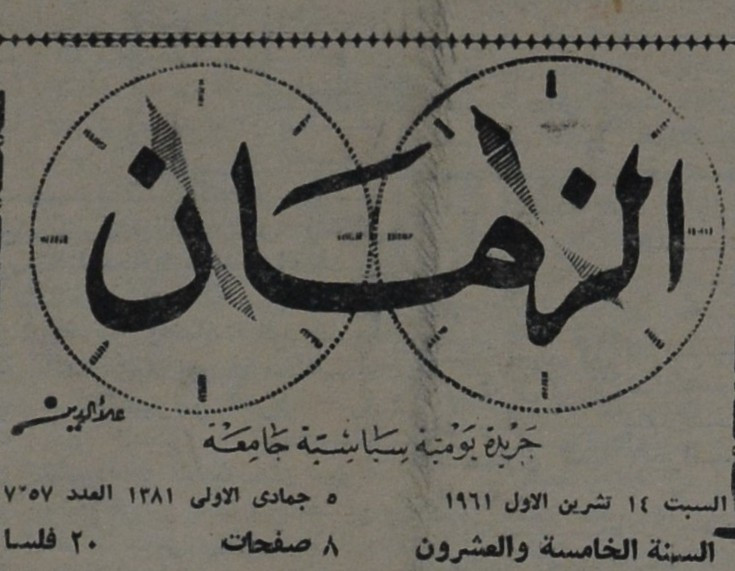 الزمان
علاءالدين
جريدة يومية سياسية جامعة
السبت ١٤ تشرين الاول ١٩٦١ ٥ جمادى الاولى ١٣٨١ العدد
السنة الخامسة والعشرون ٨ صفحات ٢٠ فلسا